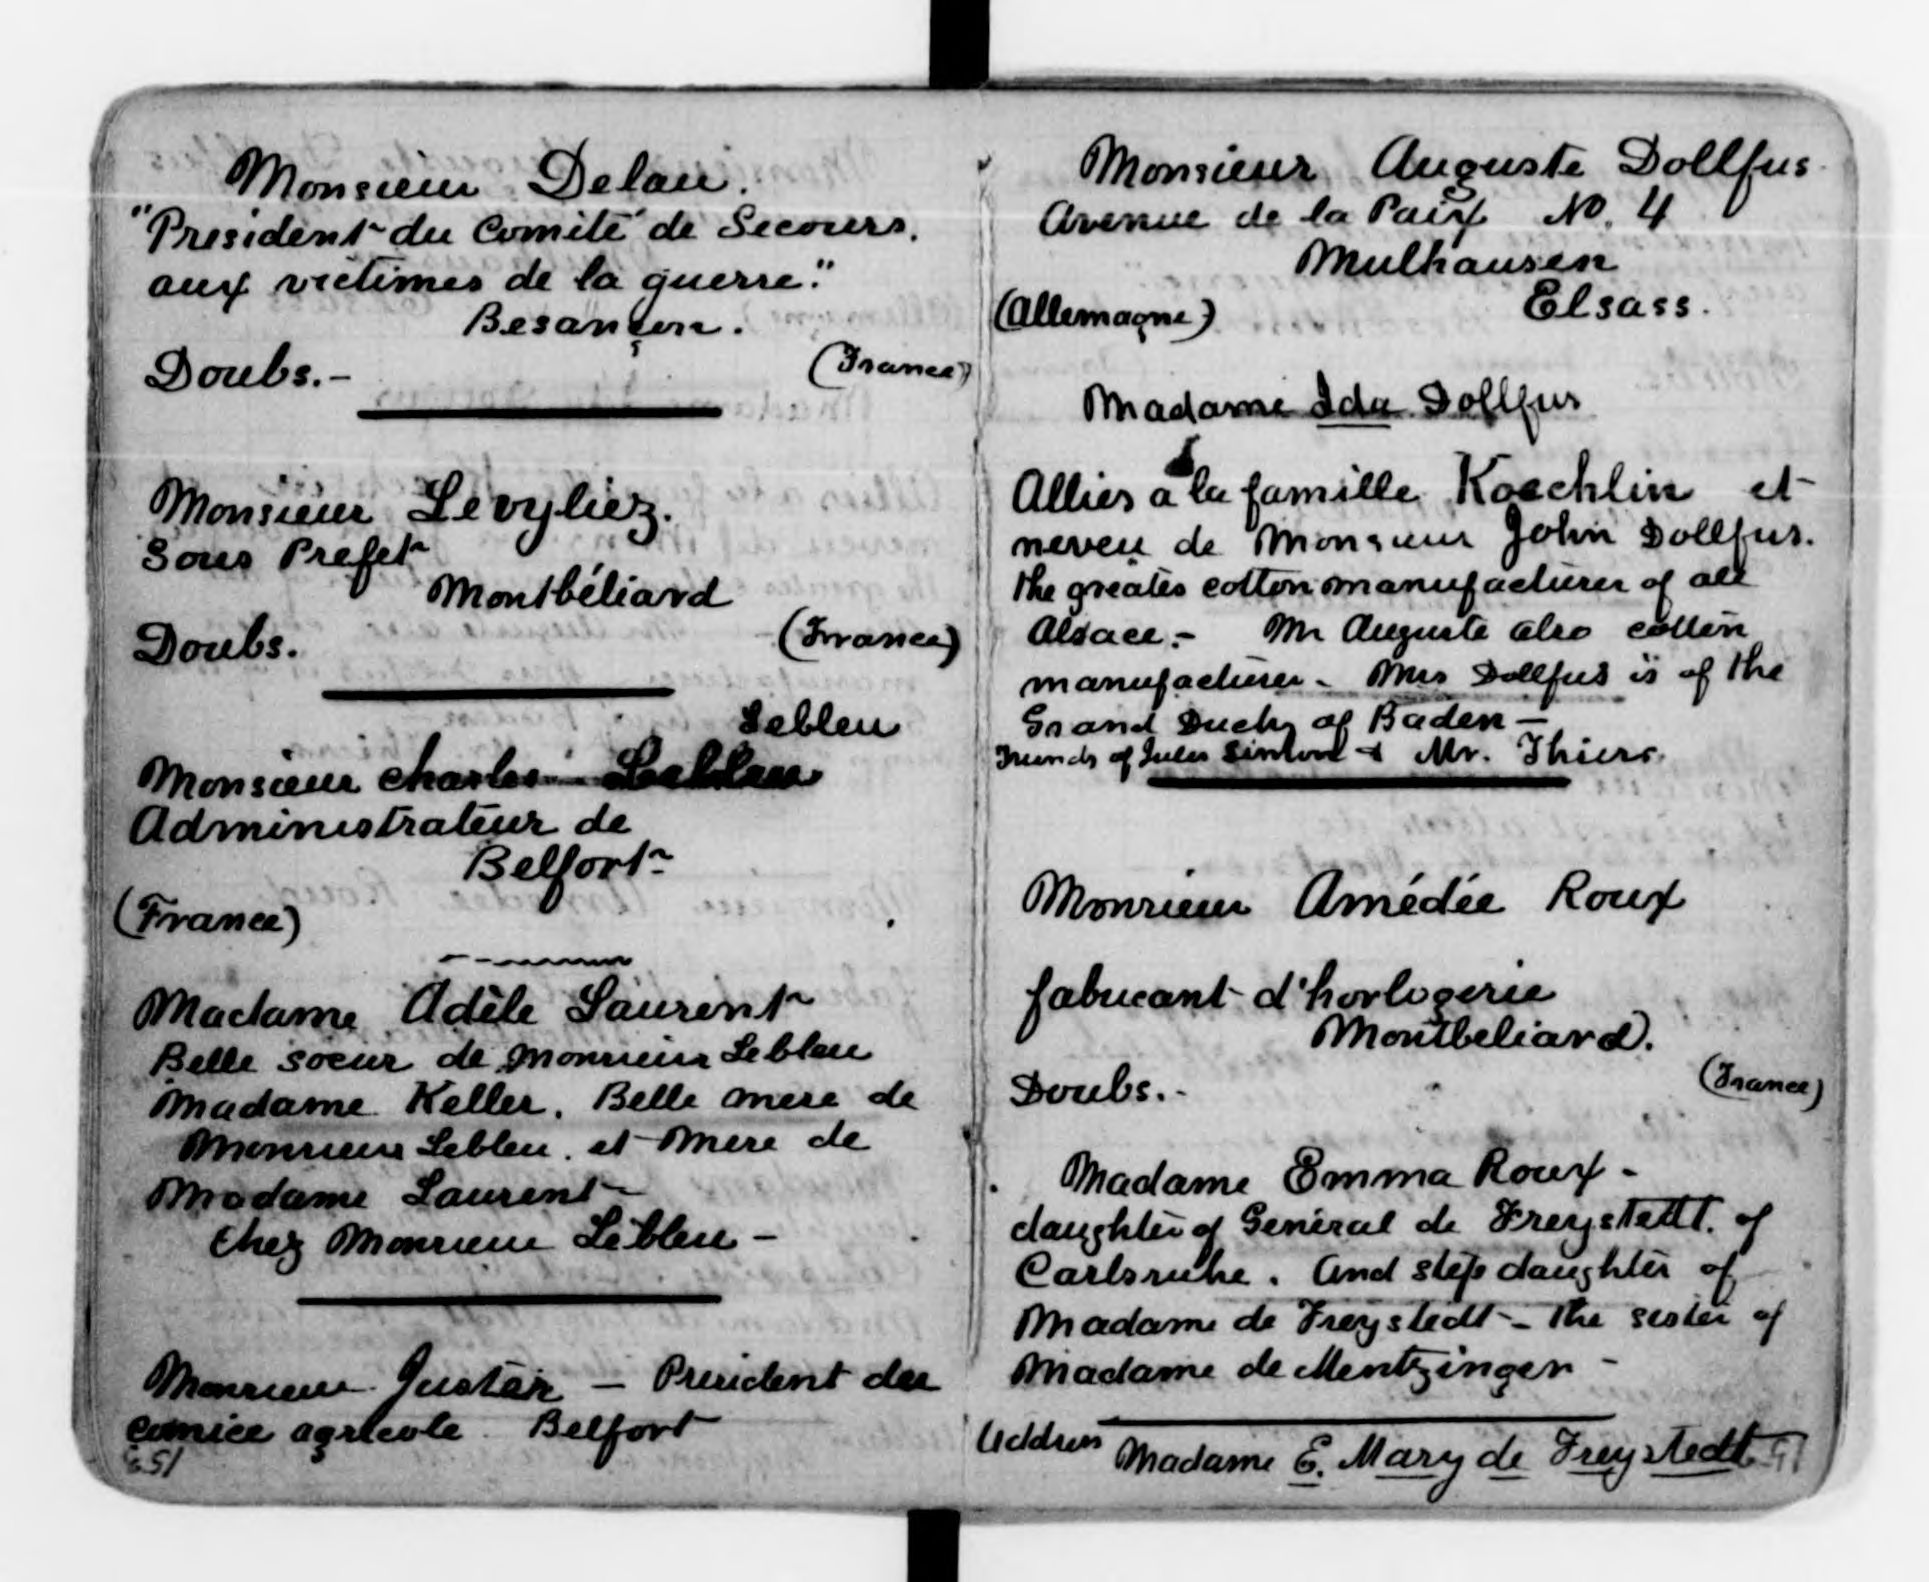 Monsieur Delau.
"President du Comité de Secours.
aux victimes de la guerre."
Besançon.
Doubs.- (France)
Monsieur Levyliez.
Sous Prefet
Montbéliard
Doubs. (France)
Lebleu
Monsieur Charles Lebleu
Administrateur de
Belfort-
(France)
Madame Adèle Laurent
Belle soeur de Monsieur Lebleu
Madame Keller. Belle mere de
Monsieur Lebleu. et Mere de
Madame Laurent
Chez Monsieur Lebleu -
Monsieur Juster - President du
comice agricole Belfort
Monsieur Auguste Dollfus
Avenue de la Paix No. 4
Mulhausen
(Allemagne) Elsass.
Madame Ida Dollfus
Allies a la famille Koechlin et
neveu de Monsieur John Dollfus.
the greates cotton manufacturer of all
Alsace.- Mr Auguste also cotton
manufacturer - Mrs Dollfus is of the
Grand Duchy of Baden -
Friends of Jules Simon & Mr. Thiers.
Monsieur Amédée Roux
fabricant d'horlogerie
Montbeliard.
Doubs.- (France)
Madame Emma Roux -
daughter of Général de Freystedt. of
Carlsruhe. And step daughter of
Madame de Freystedt - the sister of
Madame de Mentzingen -
Address Madame E. Mary de Freystedt